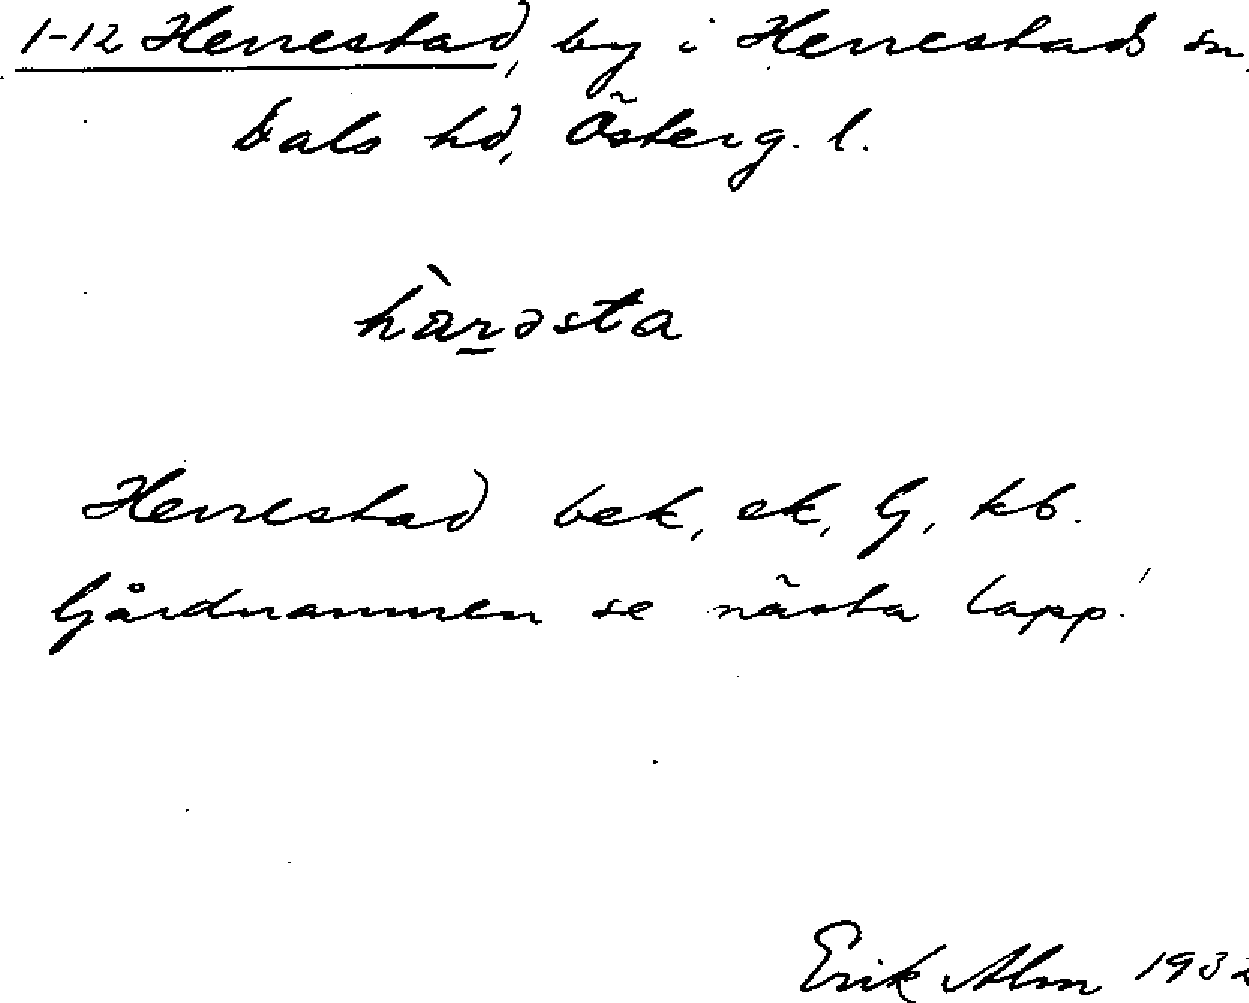 1-12 Herrestad, by i Herrestads sn.
Dals hd, Österg. l.
hàrəsta
Herrestad bek, ek, G, kb.
Gårdnamnen se nästa lapp!
Erik Alm 1932